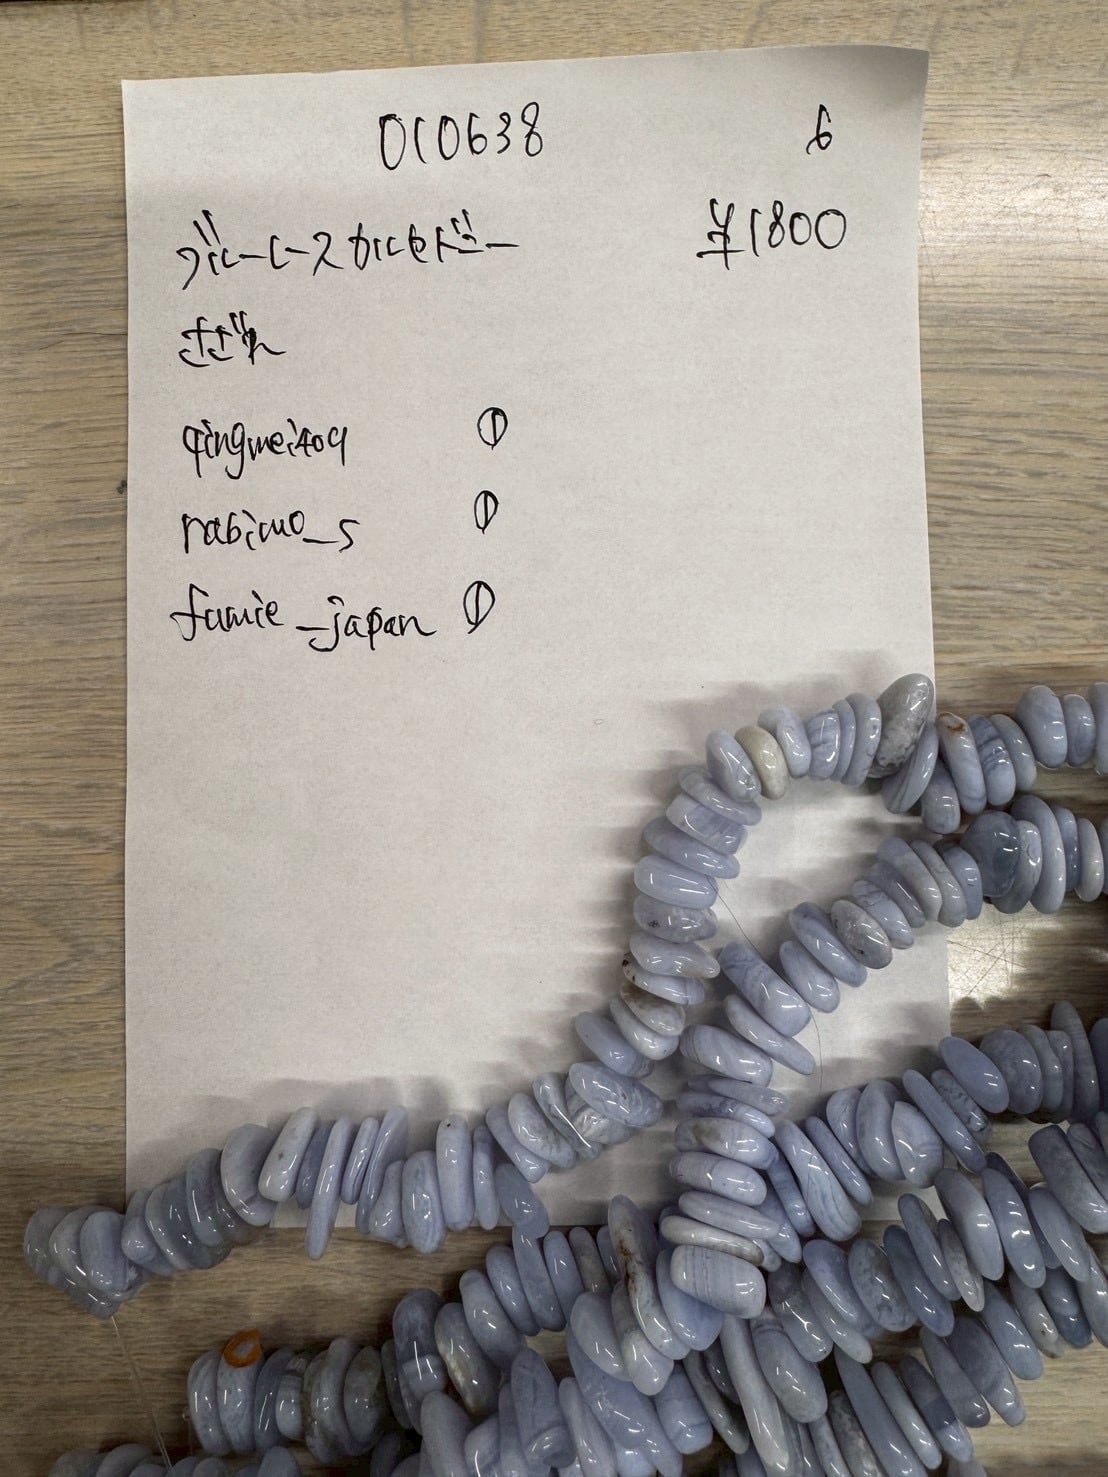 010638 6
ブルーレースカルセドニー ¥1800
さざれ
qingmei409 ①
rabimo_s ①
fumie_japan ①